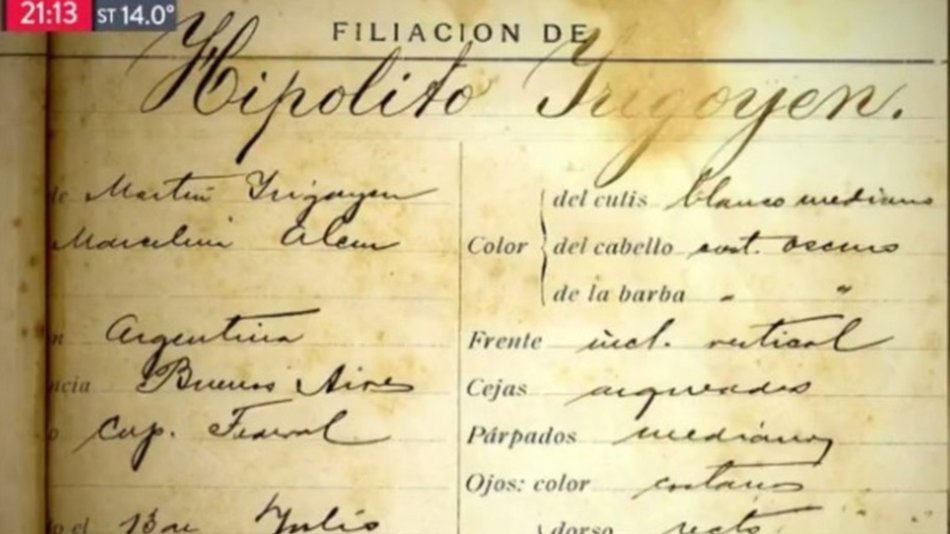 21:13 ST 14.0°
FILIACION DE
Hipolito Yrigoyen.
de Martin Yrigoyen
Marcelina Alem
Argentina
ncia Buenos Aires
o Cap. Federal
do el 13 de Julio
Color
del cutis blanco mediano
del cabello cast. oscuro
de la barba " "
Frente incl. vertical
Cejas arqueadas
Párpados medianos
Ojos: color castaños
dorso recto